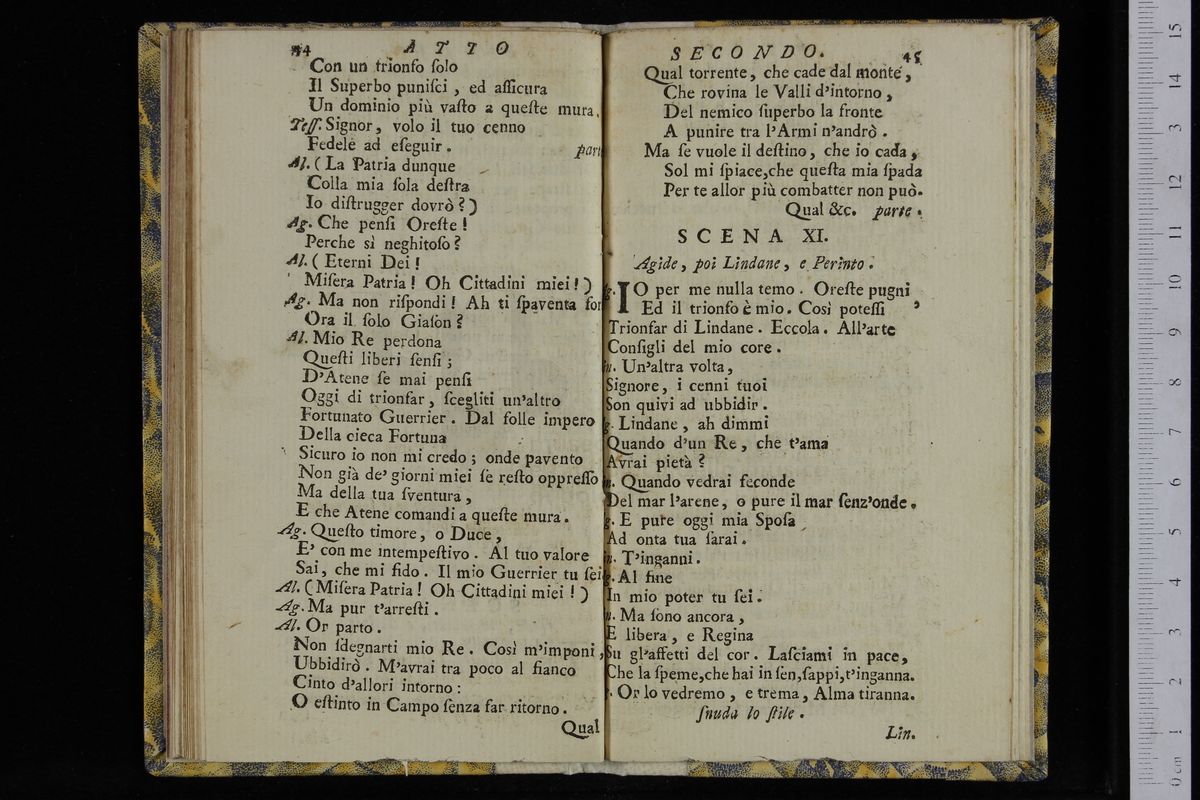 44 A T T O
Con un trionfo ſolo
Il Superbo puniſci , ed aſſicura
Un dominio più vaſto a queſte mura.
Teſſ. Signor, volo il tuo cenno
Fedele ad eſeguir. part
Al. ( La Patria dunque
Colla mia ſola deſtra
Io diſtrugger dovrò ? )
Ag. Che penſi Oreſte !
Perche sì neghitoſo ?
Al. ( Eterni Dei !
Miſera Patria ! Oh Cittadini miei ! )
Ag. Ma non riſpondi ! Ah ti ſpaventa for
Ora il ſolo Giaſon ?
Al. Mio Re perdona
Queſti liberi ſenſi ;
D'Atene ſe mai penſi
Oggi di trionfar, ſcegliti un'altro
Fortunato Guerrier . Dal folle impero
Della cieca Fortuna
Sicuro io non mi credo ; onde pavento
Non già de' giorni miei ſe reſto oppreſſo
Ma della tua ſventura ,
E che Atene comandi a queſte mura .
Ag. Queſto timore, o Duce,
E' con me intempeſtivo . Al tuo valore
Sai, che mi fido . Il mio Guerrier tu ſei
Al. ( Miſera Patria ! Oh Cittadini miei ! )
Ag. Ma pur t'arreſti .
Al. Or parto .
Non ſdegnarti mio Re . Così m'imponi ,
Ubbidirò . M'avrai tra poco al fianco
Cinto d'allori intorno :
O eſtinto in Campo ſenza far ritorno .
Qual
S E C O N D O. 45
Qual torrente, che cade dal monte,
Che rovina le Valli d'intorno ,
Del nemico ſuperbo la fronte
A punire tra l'Armi n'andrò .
Ma ſe vuole il deſtino, che io cada ,
Sol mi ſpiace,che queſta mia ſpada
Per te allor più combatter non può.
Qual &c. parte .
S C E N A XI.
Agide, poi Lindane, e Perinto .
g. IO per me nulla temo . Oreſte pugni
Ed il trionfo è mio. Così poteſſi ,
Trionfar di Lindane . Eccola . All'arte
Conſigli del mio core .
n. Un'altra volta,
Signore, i cenni tuoi
Son quivi ad ubbidir .
g. Lindane, ah dimmi
Quando d'un Re, che t'ama
Avrai pietà ?
n. Quando vedrai feconde
Del mar l'arene, o pure il mar ſenz'onde .
g. E pure oggi mia Spoſa
Ad onta tua ſarai .
n. T'inganni .
g. Al fine
In mio poter tu ſei .
n. Ma ſono ancora ,
E libera, e Regina
Su gl'affetti del cor . Laſciami in pace,
Che la ſpeme,che hai in ſen,ſappi,t'inganna.
. Or lo vedremo , e trema, Alma tiranna.
ſnuda lo ſtile .
Lin.
0 cm 1 2 3 4 5 6 7 8 9 10 11 12 13 14 15